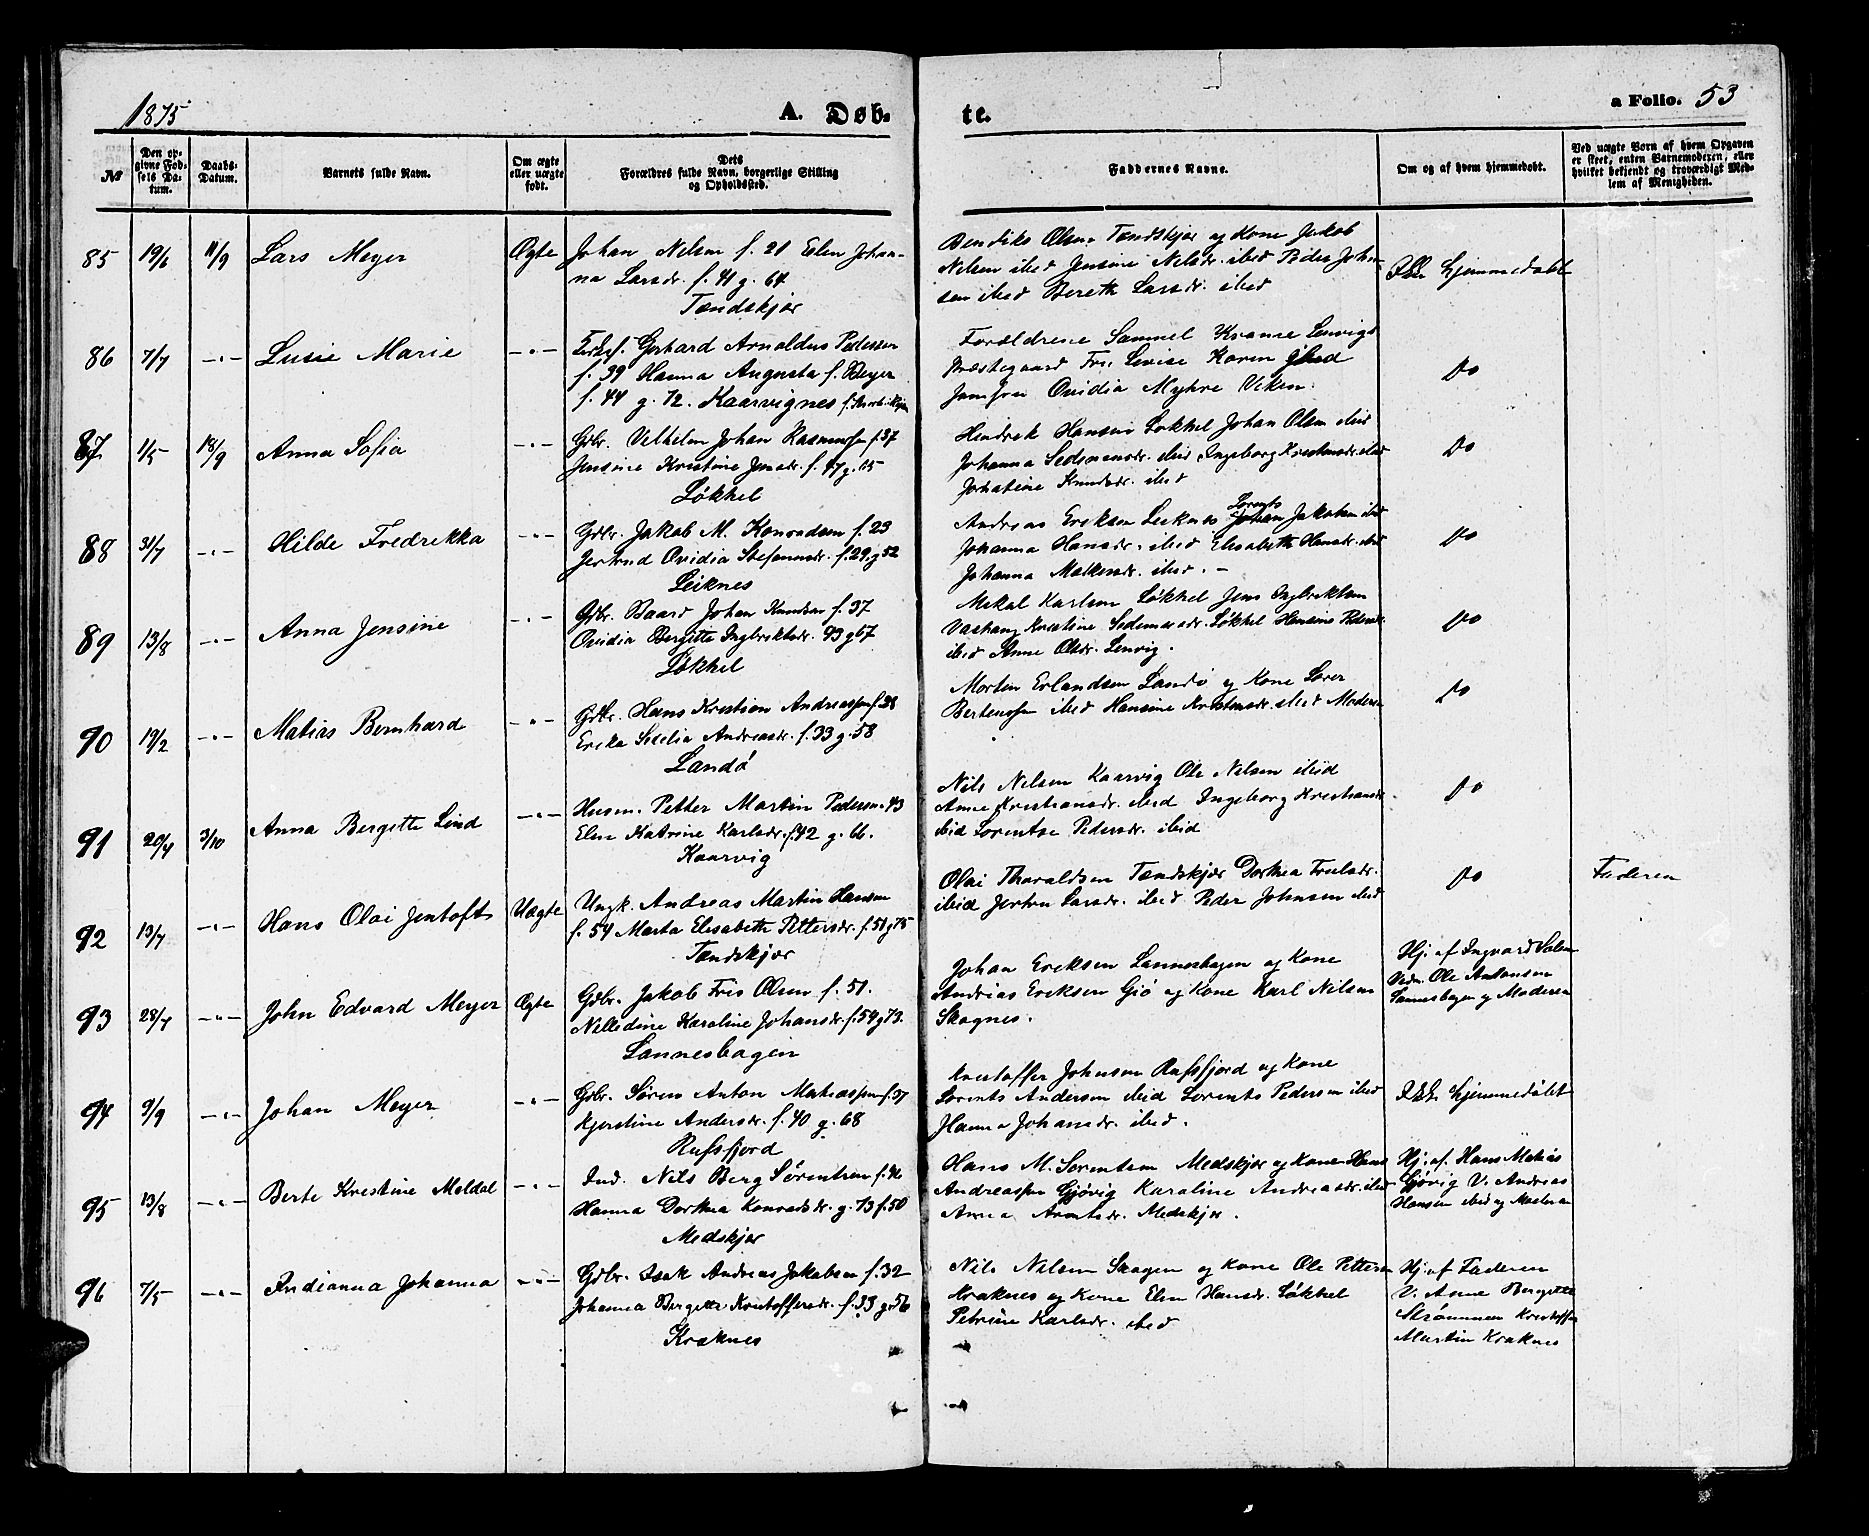 1875
A. Døb-
te.
a Folio. 53
№
Den op-
givne Fød-
sels Da-
tum.
Daabs-
Datum.
Barnets fulde Navn.
Om ægte
eller uægte
født.
Dets
Forældres fulde Navn, borgerlige Stilling
og Opholdssted.
Faddernes Navne.
Om og af hvem hjemmedøbt.
Ved uægte Børn af hvem Opgaven
er skeet, enten Barnemoderen, eller
hvilket bekjendt og troværdigt Med-
lem af Menigheden.
85 19/6 11/9 Lars Meyer Ægte
Johan Nilsen f. 21 Elen Johan-
na Larsdr. f. 41 g. 64
Tændskjær
Bendiks Olsen Tændskjær og Kone Jakob
Nilsen ibid Jensine Nilsdr. ibid Peder John-
sen ibid Bereth Larsdr. ibid
Ikke hjemmedøbt
86 7/7 -"- Lusie Marie -"-
Gerhard Arnoldus Pedersen
f. 39 Hanna Augusta f. Beyer
f. 44 g. 72. Kaarvignes
Forældrene Samuel Kvame Lenvigs
Præstegaard Frk. Lovise Karen
Ovidia Myhre Viken.
Do
87 1/5 18/9 Anna Sofia -"-
Gdbr. Vilhelm Johan Rasmussen f. 37
Jensine Kristine Jensdr. f. 47 g.
Løkhel
Hendrik Hansen Løkhel Johan Olsen ibid
Johanna Sedsemsdr. ibid Ingeborg Kristensdr. ibid
Knudsdr. ibid
Do
88 31/7 -"- Hilde Fredrikka -"-
Gdbr. Jakob M. Konradsen f. 23
Jertrud Ovidia Stefansdr. f. 29. g 52
Leiknes
Andreas Eriksen Leiknes Lorents Jakobsen ibid
Johanna Hansdr. ibid Elisabeth Hansdr. ibid
Johanna ibid. -
Do
89 13/8 -"- Anna Jensine -"-
Gdbr. Baard Johan Knudsen f. 37
Ovidia Bergitte Ingbrektsdr. 43 g 67
Løkhel
Mikal Karlsen Løkhel Jens Ingbriktsen
Vashaug Kristine Løkhel Hansine Pedersdr.
ibid Anne Olsdr. Lenvig.
Do
90 19/2 -"- Matias Bernhard -"-
Gdbr. Hans Kristian Andreassen f. 28
Erika Sesilia Andreasdr. f. 33 g. 58
Landø
Morten Erlandsen Landø og Kone Sører
Bertensen ibid Hansine Kristensdr. ibid Moderen
Do
91 20/4 3/10 Anna Bergitte Lind -"-
Husm. Petter Martin Pedersen 43
Elen Katrine Karlsdr. f. 42 g. 66.
Kaarvig
Nils Nilsen Kaarvig Ole Nilsen ibid
Anne Kristiansdr. ibid Ingeborg Kristiansdr.
ibid Lorentse Pedersdr. ibid
Do
92 13/7 -"- Hans Olai Jentoft Uægte
Ungk. Andreas Martin Hansen
f. 54 Marta Elisabeth Pettersdr. f. 51 g 75
Tændskjær
Olai Tharaldsen Tændskjær Dorthea
ibid Jertru Larsdr. ibid Peder Johnsen ibid
Do
Faderen
93 28/7 -"- John Edvard Meyer Ægte
Gdbr. Jakob Fris Olsen f. 51.
Nillsdine Karoline Johansdr. f. 54 g 73.
Sannesbagen
Johan Eriksen Sannesbagen og Kone
Andrias Eriksen Gjø og Kone Karl Nilsen
Skognes.
Hj. af Ingvard
Vidn. Ole Antonsen
Sannesbagen og Moderen
94 9/9 -"- Johan Meyer -"-
Gdbr. Søren Anton Matiassen f. 37
Kjerstine Andersdr. f. 40 g. 68
Rufsfjord
Kristoffer Johnsen Rufsfjord og Kone
Lorents Andersen ibid Lorents Pedersen ibid
Hanna Johansdr. ibid.
Ikke hjemmedøbt
95 13/8 -"- Berte Kristine Meldal -"-
Ind. Nils Berg Sørentsen f. 46
Hanna Dorthea Konradsdr. g. 73 f. 50
Medskjær
Hans M. Sorentsen Medskjær og Kone Hans
Andreassen Gjøvig Karoline Andreasdr. ibid
Anna Arntsdr. Medskjær.
Hj. af. Hans Matias
Gjøvig V. Andreas
Hansen ibid og Moderen
96 7/5 -"- Indianna Johanna -"-
Gdbr. Isak Andreas Jakobsen f. 32
Johanna Bergitte Kristoffersdr. f. 33 g. 56
Kraknes
Nils Nilsen Skogen og Kone Ole Pettersen
Kraknes og Kone Elen Hansdr. Løkhel
Petrine Karlsdr. ibid
Hj. af Faderen
V. Anne Bergitte
Strømmen Kristoffer
Martin Kraknes